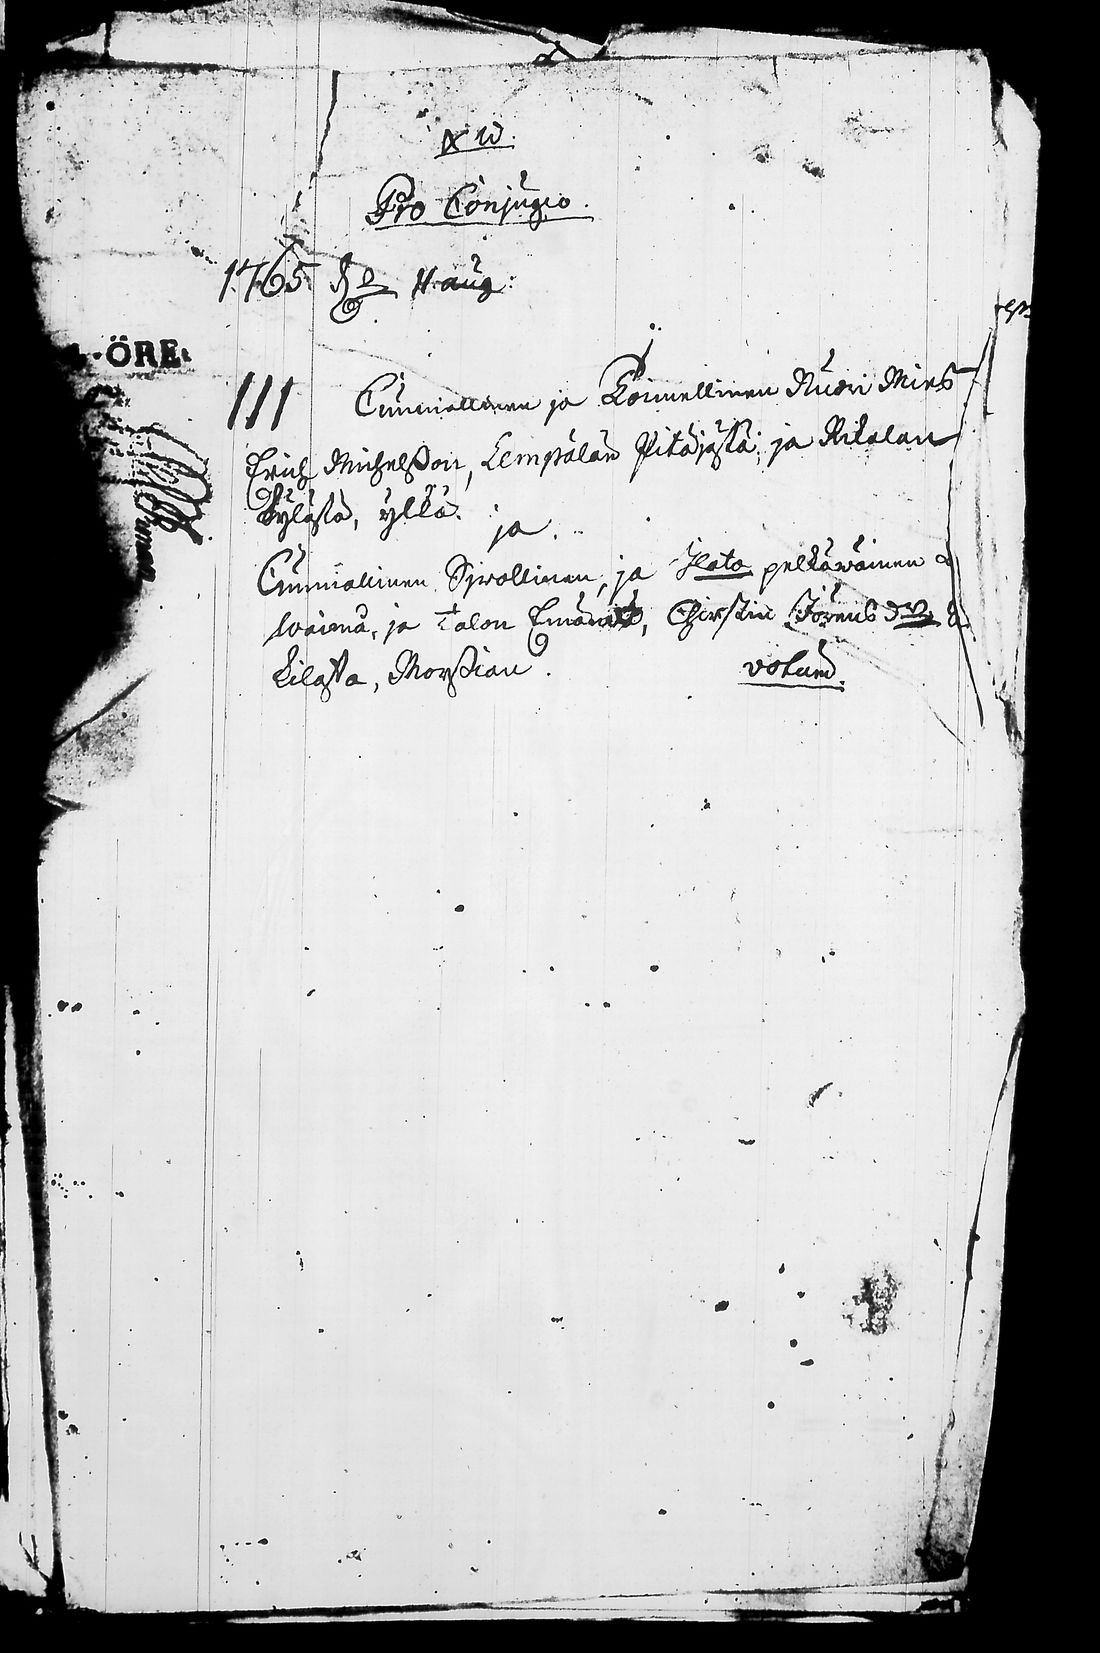 N 10.
Pro Conjugio.
1765 d. 11 aug:
ÖRE.
III Cunniallinen ja Toimellinen Nuori Mies
Erich Michelsson, Lempälän Pitäjästä, ja Rikalan
Kylästä, ylkä.
ja.
Cunniallinen Sivollinen, ja pelkäwäinen
waimo, ja Talon Emändä, Chirstin Jörens dr
Lilasta, Morsian.
votum.